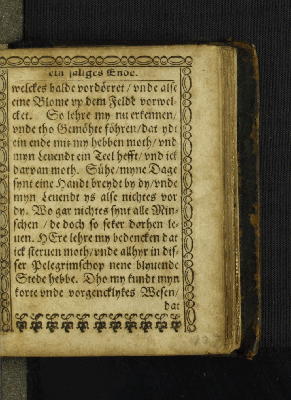 ein saliges Ende.
welckes balde vordörret / vnde alse
eine Blome vp dem Felde vorwel-
cket. So lehre my nu erkennen /
vnde tho Gemöhte föhren / dat ydt
ein ende mit my hebben moth / vnd
myn Leuendt ein Teel hefft / vnd ick
daruan moth. Sühe / myne Dage
synt eine Handt breydt by dy / vnde
myn Leuendt ys alse nichtes vor
dy. Wo gar nichtes synt alle Min-
schen / de doch so seker darhen le-
uen. HEre lehre my bedencken dat
ick steruen moth / vnde allhyr in dis-
ser Pelegrimschop nene blyuende
Stede hebbe. Dho my kundt myn
korte vnde vorgencklykes Wesen /
dat